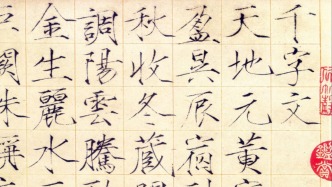 千字文
天地元黃
盈昃辰宿
秋收冬藏
調陽雲騰
金生麗水
闕珠稱